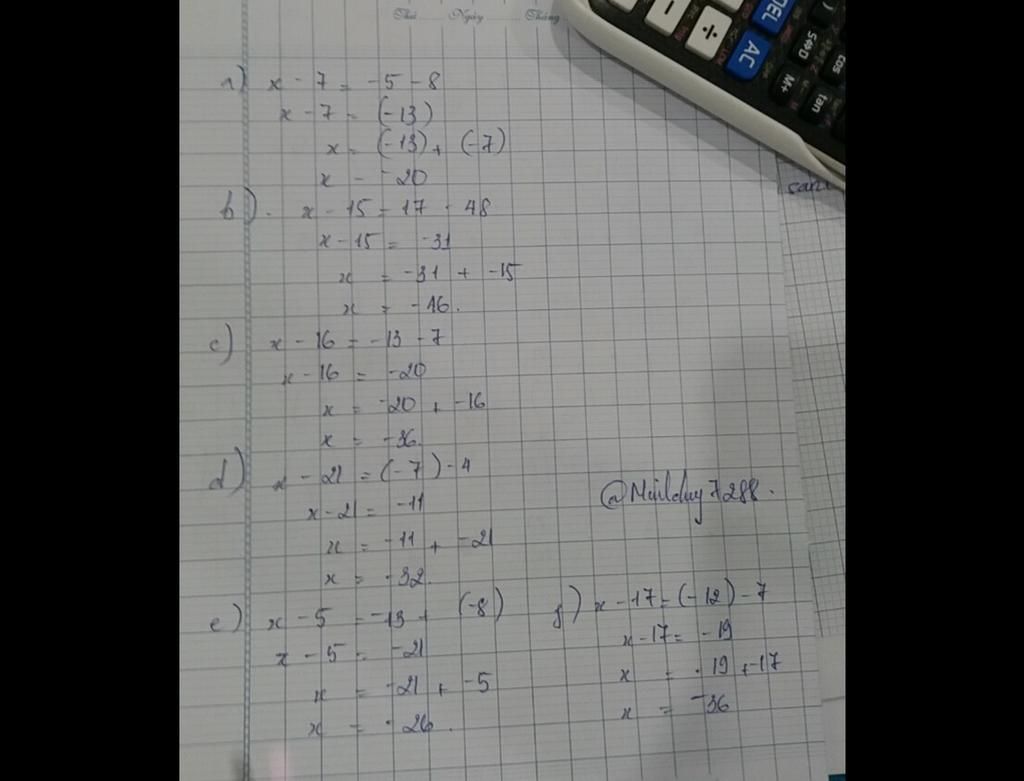 Thứ Ngày Tháng
÷ DEL AC
S⇔D M+ cos tan
a) x - 7 = -5 - 8
x - 7 = (-13)
x = (-13) + (-7)
x = -20
b). x - 15 = 17 - 48
x - 15 = -31
x = -31 + -15
x = -46.
c) x - 16 = -13 - 7
x - 16 = -20
x = -20 + -16
x = -36.
d) x - 21 = (-7) - 4
x - 21 = -11
x = -11 + -21
x = -32.
@Minhduy7288.
e) x - 5 = -13 + (-8)
x - 5 = -21
x = -21 + -5
x = -26.
f) x - 17 = (-12) - 7
x - 17 = -19
x = -19 + -17
x = -36